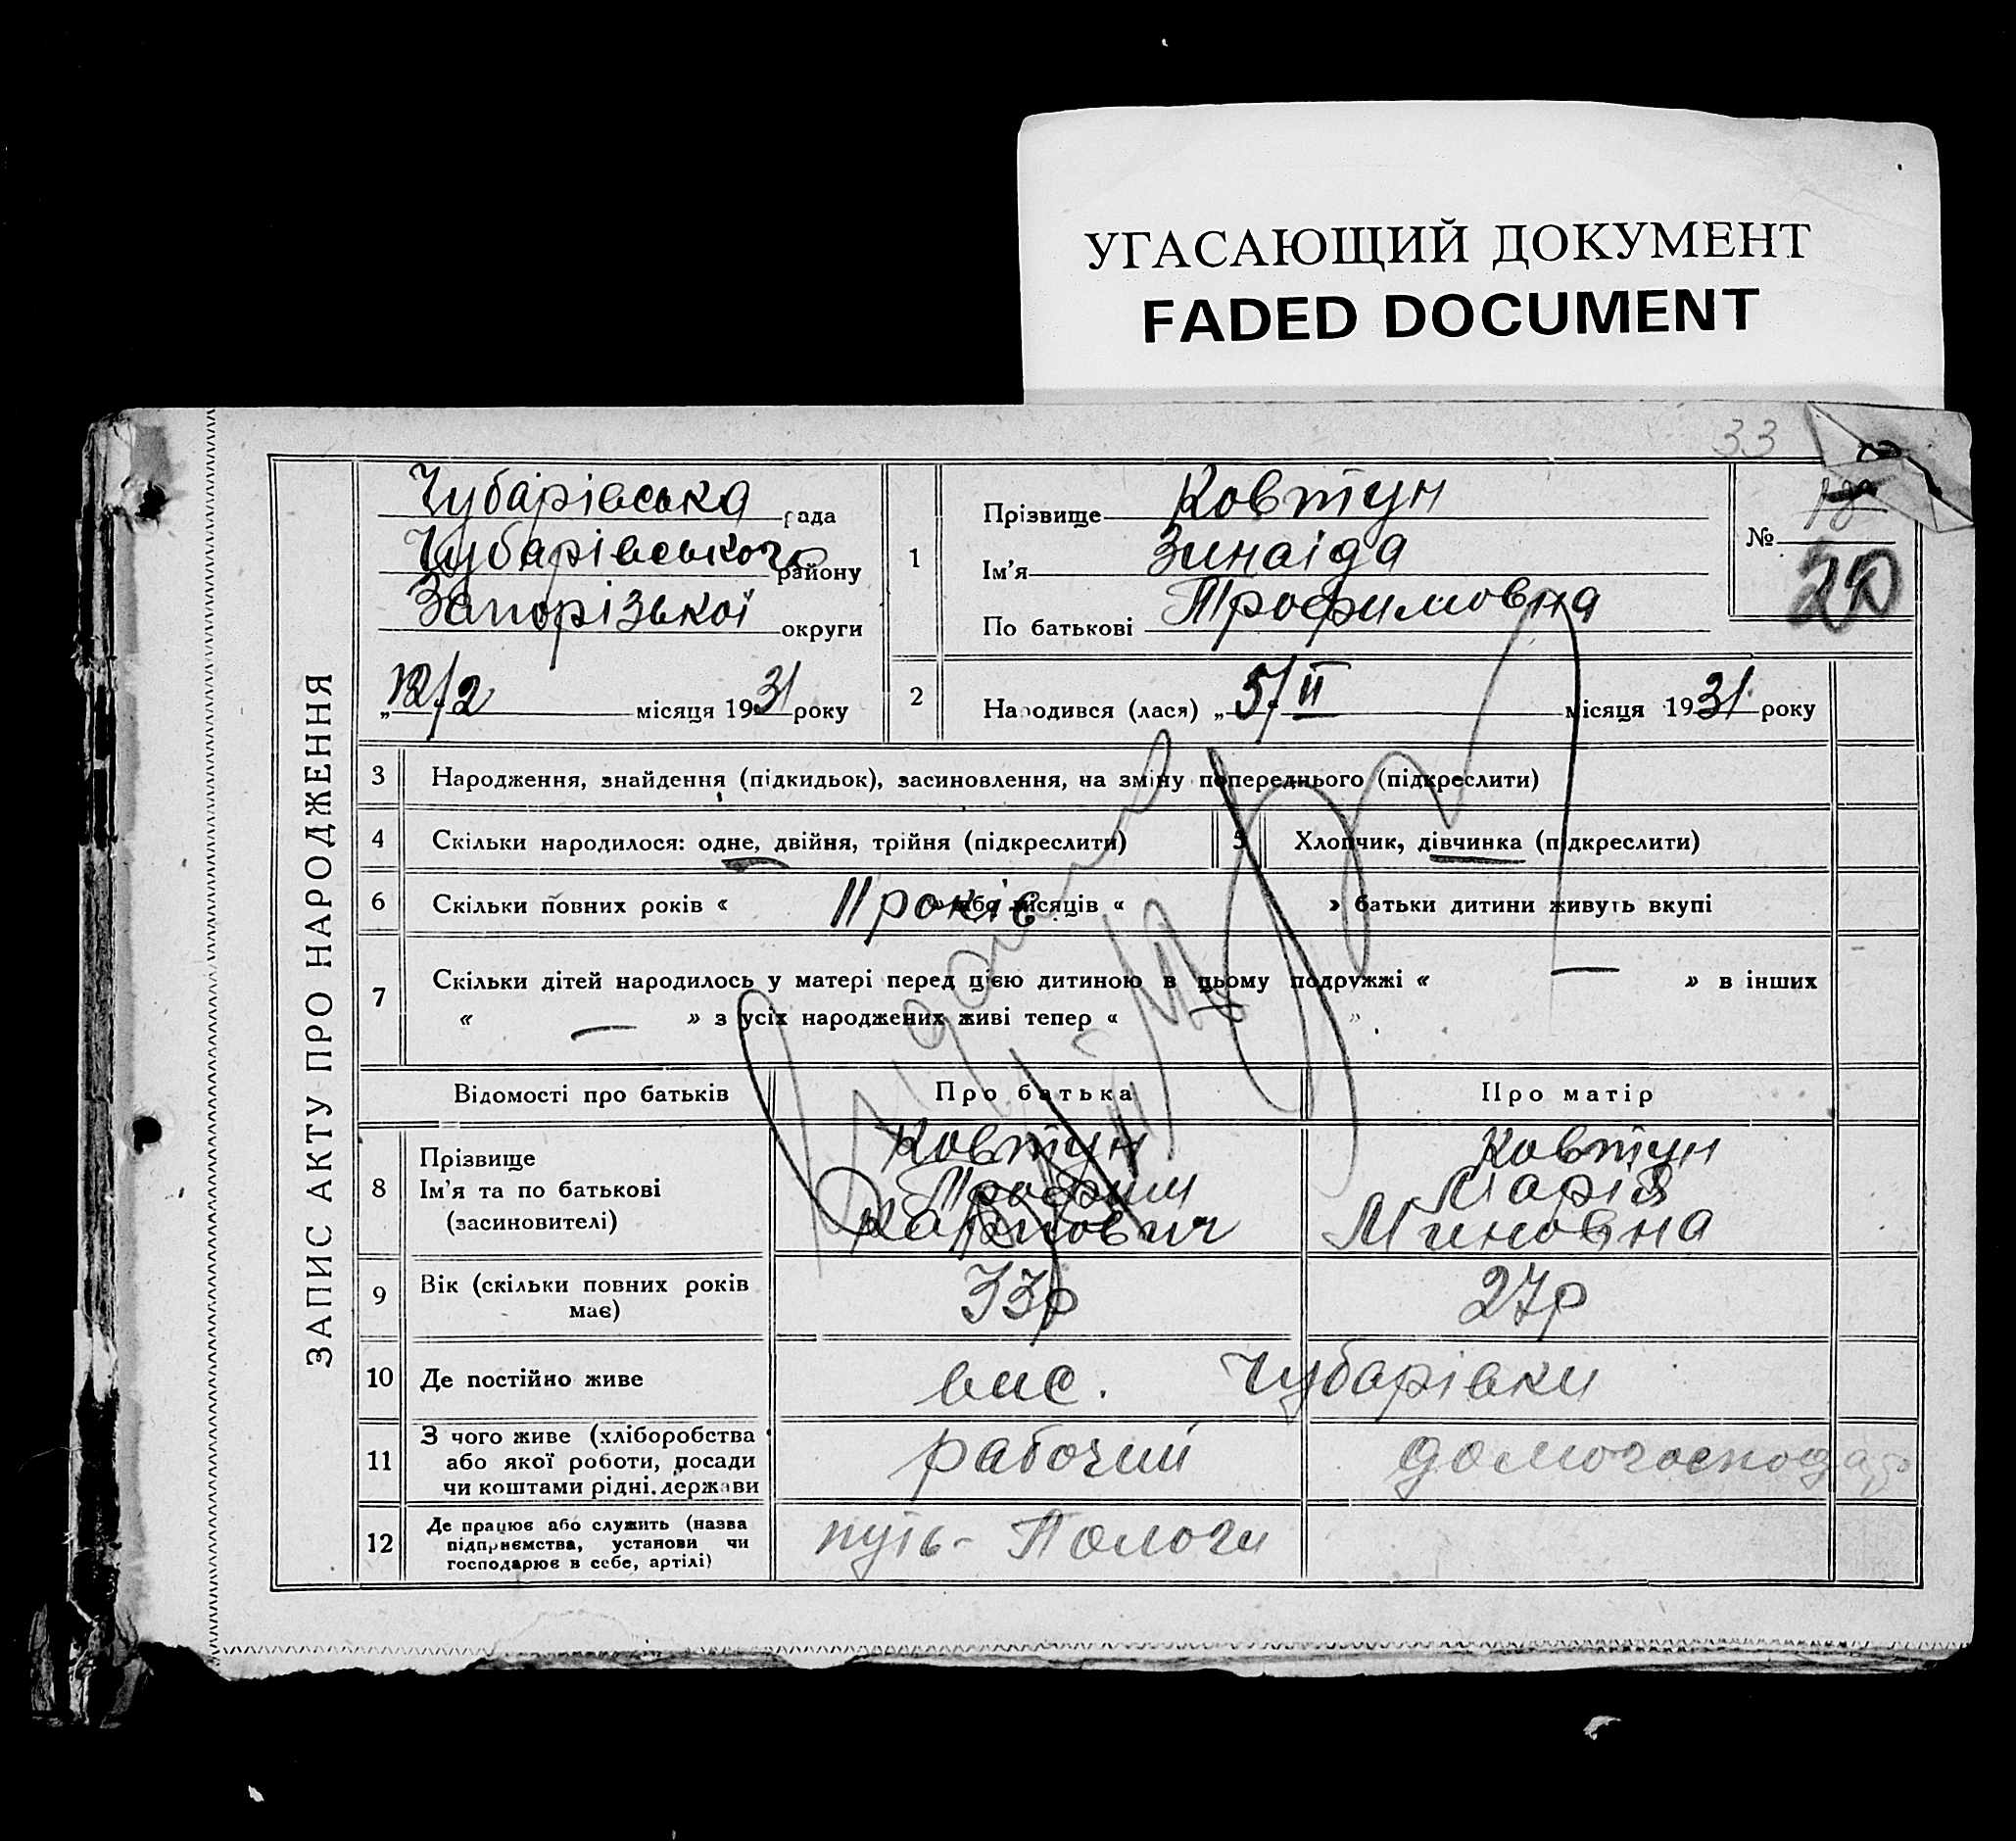 УГАСАЮЩИЙ ДОКУМЕНТ
FADED DOCUMENT
33
ЗАПИС АКТУ ПРО НАРОДЖЕННЯ
Чубарівська рада
Чубарівського району
Запорізької округи
„12/2 місяця 1931 року
1
Прізвище Ковтун
Ім'я Зинаіда
По батькові Трофимовна
№
20
2 Народився (лася) „5/II місяця 1931 року
3 Народження, знайдення (підкидьок), засиновлення, на зміну попереднього (підкреслити)
4 Скільки народилося: одне, двійня, трійня (підкреслити) 5 Хлопчик, дівчинка (підкреслити)
6 Скільки повних років « 11 років » або місяців « » батьки дитини живуть вкупі
7 Скільки дітей народилось у матері перед цією дитиною в цьому подружжі « — » в інших
« — » з усіх народжених живі тепер « — ».
Відомості про батьків Про батька Про матір
8 Прізвище Ковтун Ковтун
Ім'я та по батькові Трофим Марія
(засиновителі) Миновна
9 Вік (скільки повних років має) 33р 27р
10 Де постійно живе вис. Чубарівки
11 З чого живе (хліборобства або якої роботи, посади чи коштами рідні, держави рабочий домогосподар
12 Де працює або служить (назва підприємства, установи чи господарює в себе, артілі) путь - Пологи